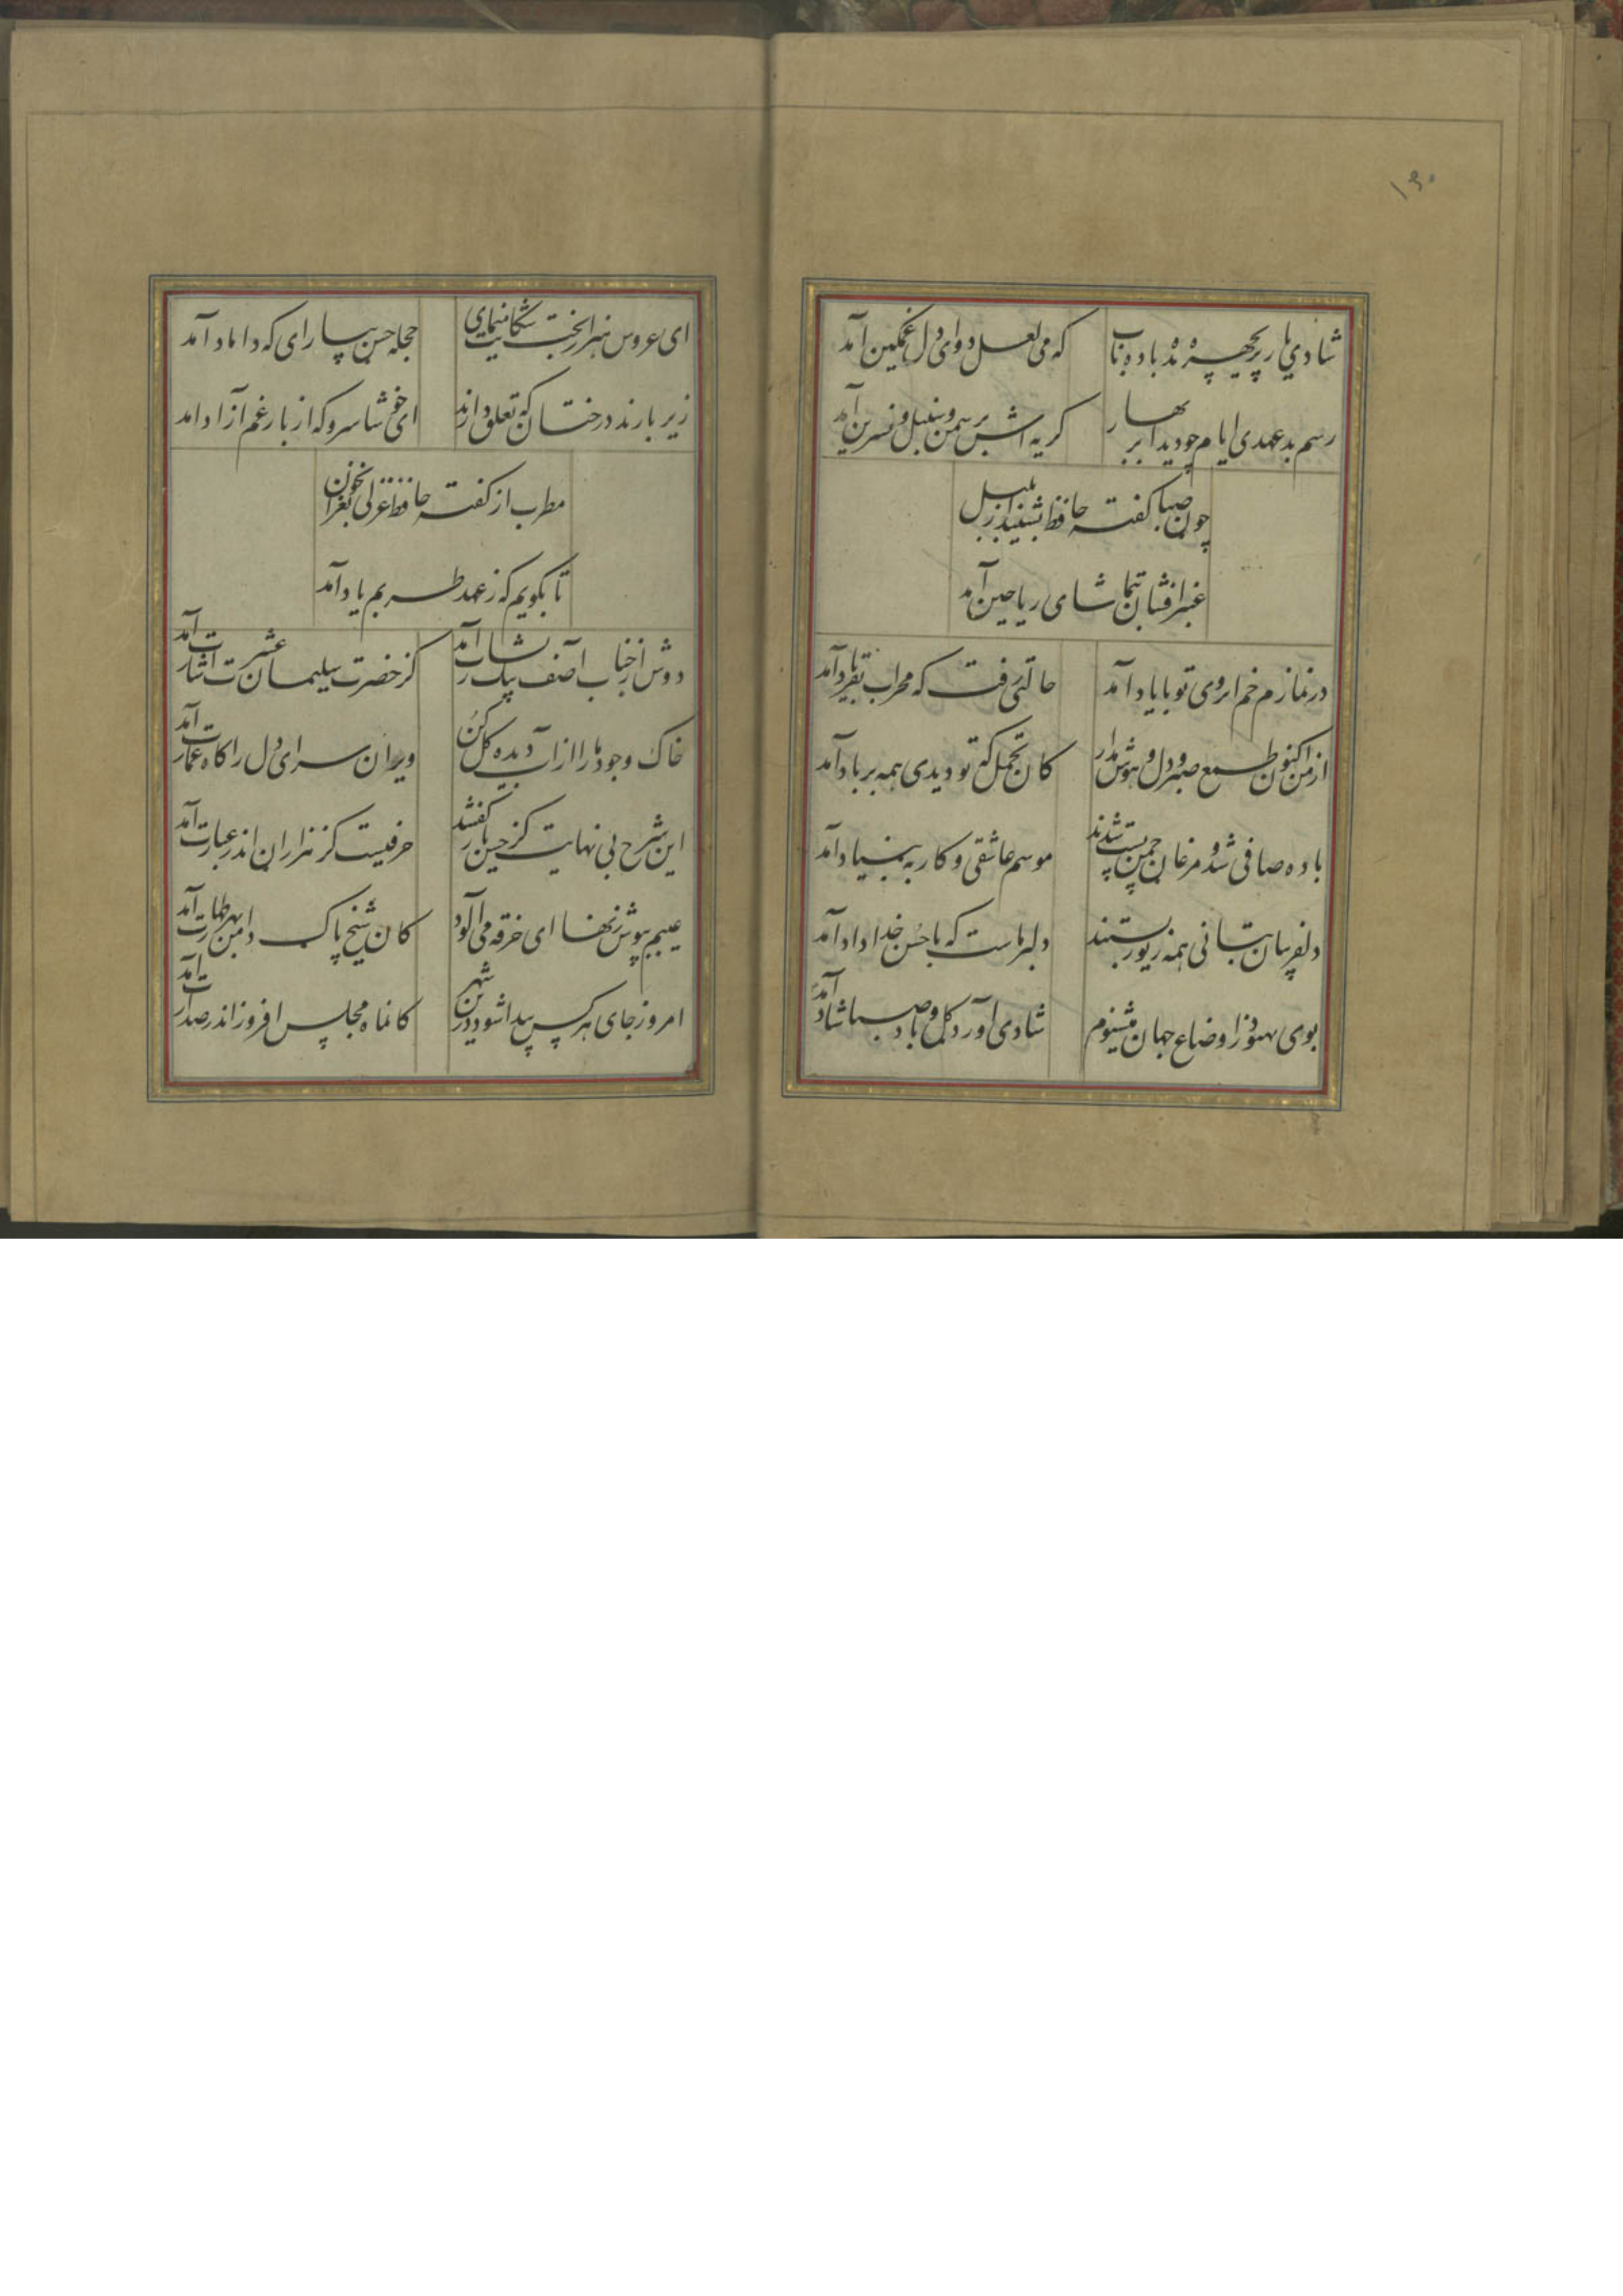 ۱۶۰
شادی یار پریچهره بده باده ناب
که می لعل دوای دل غمگین آمد
رسم بدعهدی ایام چو دید ابر بهار
کریه اش بر سمن و سنبل و نسرین آمد
چون صبا کفته حافظ بشنید از بلبل
عنبر افشان بتماشای ریاحین آمد
در نمازم خم ابروی تو با یاد آمد
حالتی رفت که محراب بفریاد آمد
از من اکنون طمع صبر و دل و هوش مدار
کان تحمل که تو دیدی همه بر باد آمد
باده صافی شد و مرغان چمن مست شدند
موسم عاشقی و کار به بنیاد آمد
دلفریبان بتانی همه زیور بستند
دلبر ماست که با حسن خداداد آمد
بوی بهبود ز اوضاع جهان میشنوم
شادی آورد کل و باد صبا شاد آمد
ای عروس هنر از بخت شکایت منمای
حجله حسن بیارای که داماد آمد
زیر بارند درختان که تعلق دارند
ای خوشا سرو که از بار غم آزاد امد
مطرب از کفته حافظ غزلی نغز بخوان
تا بکویم که ز عهد طربم یاد آمد
دوش از جناب آصف پیک بشارت آمد
کز حضرت سلیمان عشرت اشارت آمد
خاک وجود ما را از آب دیده کل کن
ویران سرای دل را کاه عمارت آمد
این شرح بی نهایت کز حسن یار کفتند
حرفیست کز هزاران اندر عبارت آمد
عیبم بپوش زنهار ای خرقه می آلود
کان شیخ پاک دامن بهر طهارت آمد
امروز جای هر کس پیدا شود درین شهر
کانماه مجلس افروز اندر صدارت آمد